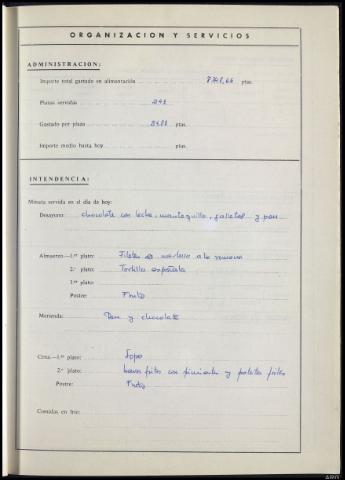 ORGANIZACION Y SERVICIOS
ADMINISTRACION:
Importe total gastado en alimentación ptas.
Plazas servidas 241
Gastado por plaza ptas.
Importe medio hasta hoy ptas.
INTENDENCIA:
Minuta servida en el día de hoy:
Desayuno: chocolate con leche, mantequilla, galletas y pan
Almuerzo.—1.er plato: Filetes a la romana
2.º plato: Tortilla española
3.er plato:
Postre: Fruta
Merienda: Pan y chocolate
Cena.—1.er plato: Sopa
2.º plato: huevos fritos con pimientos y patatas fritas
Postre: Fruta
Comidas en frío: